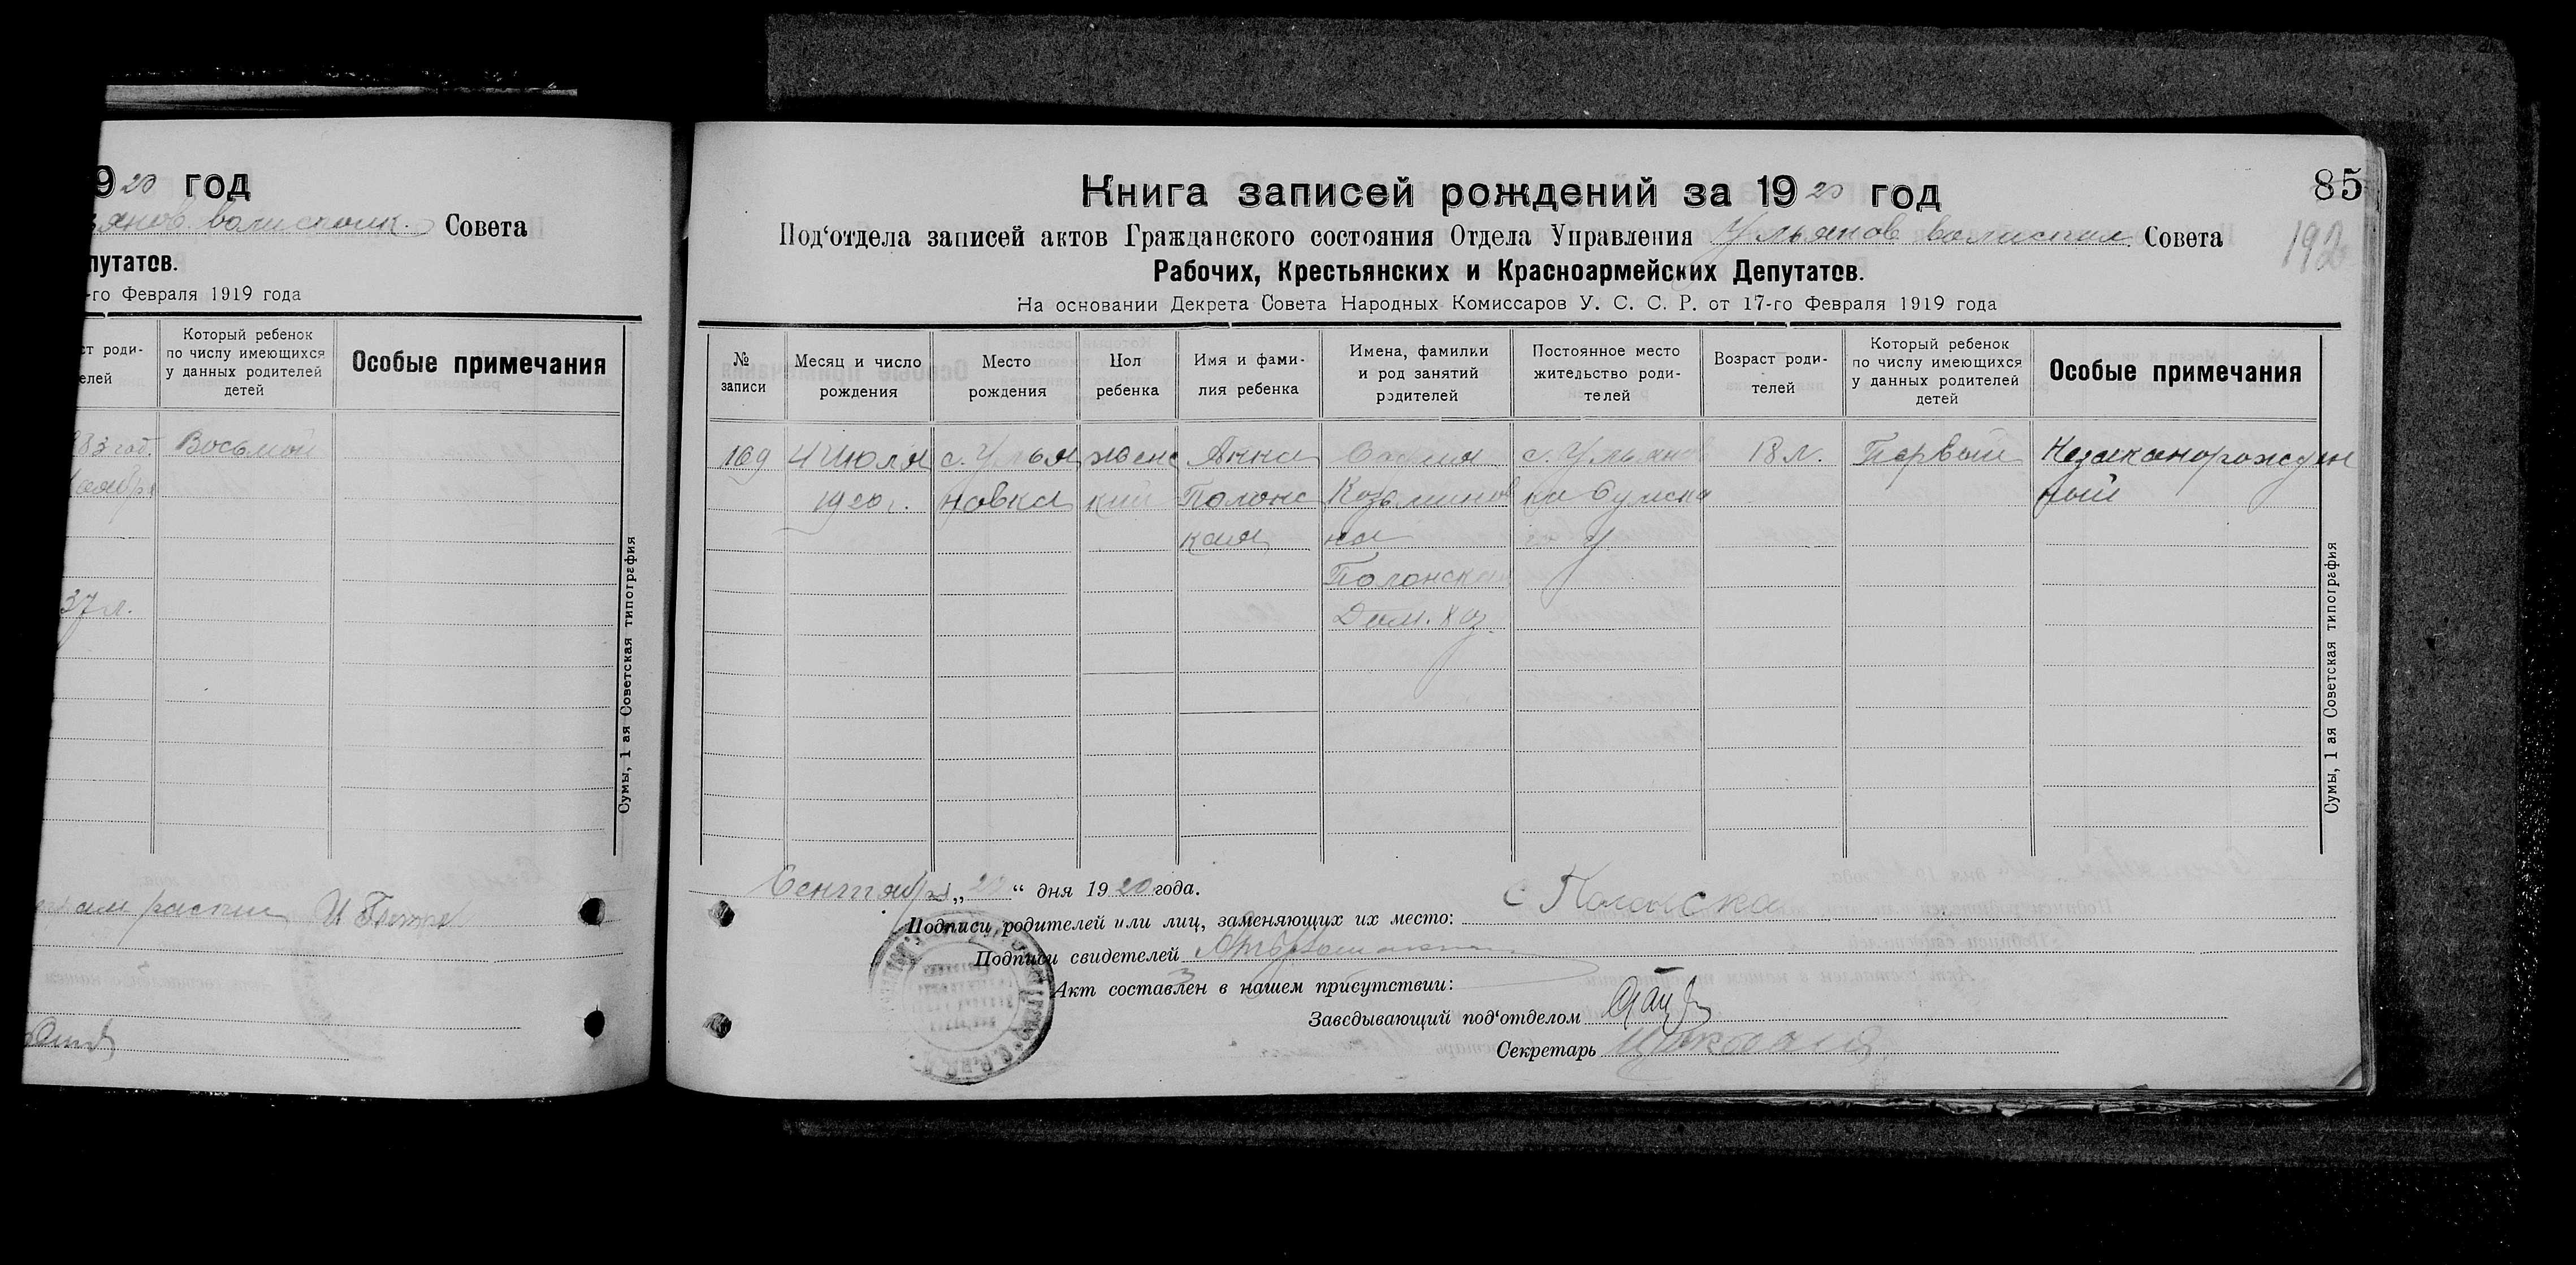 20 год
янов. волисполк. Совета
путатов.
-го Февраля 1919 года
ст роди-
елей
Который ребенок
по числу имеющихся
у данных родителей
детей
Особые примечания
83 год.
Восьмой
37 л.
Сумы, 1 ая Советская типография
85
192
Книга записей рождений за 1920 год
Под‘отдела записей актов Гражданского состояния Отдела Управления Ульянов волисполк Совета
Рабочих, Крестьянских и Красноармейских Депутатов.
На основании Декрета Совета Народных Комиссаров У. С. С. Р. от 17-го Февраля 1919 года
№
записи
Месяц и число
рождения
Место
рождения
Пол
ребенка
Имя и фами-
лия ребенка
Имена, фамилии
и род занятий
родителей
Постоянное место
жительство роди-
телей
Возраст роди-
телей
Который ребенок
по числу имеющихся
у данных родителей
детей
Особые примечания
169
4 Июля
1920 г.
с. Улья
новка
женс
кий
Анна
Полонс
кая
София
Козьминов
на
Полонская
Дом. хоз.
с. Ульянов
ка Сумска
у
18 л.
Первый
Незаконорожден
ный
Сумы, 1 ая Советская типография
Сентября „22“ дня 1920 года.
Подписи родителей или лиц, заменяющих их место: С Полонска
Подписи свидетелей
Акт составлен в нашем присутствии:
Заведывающий под‘отделом
Секретарь